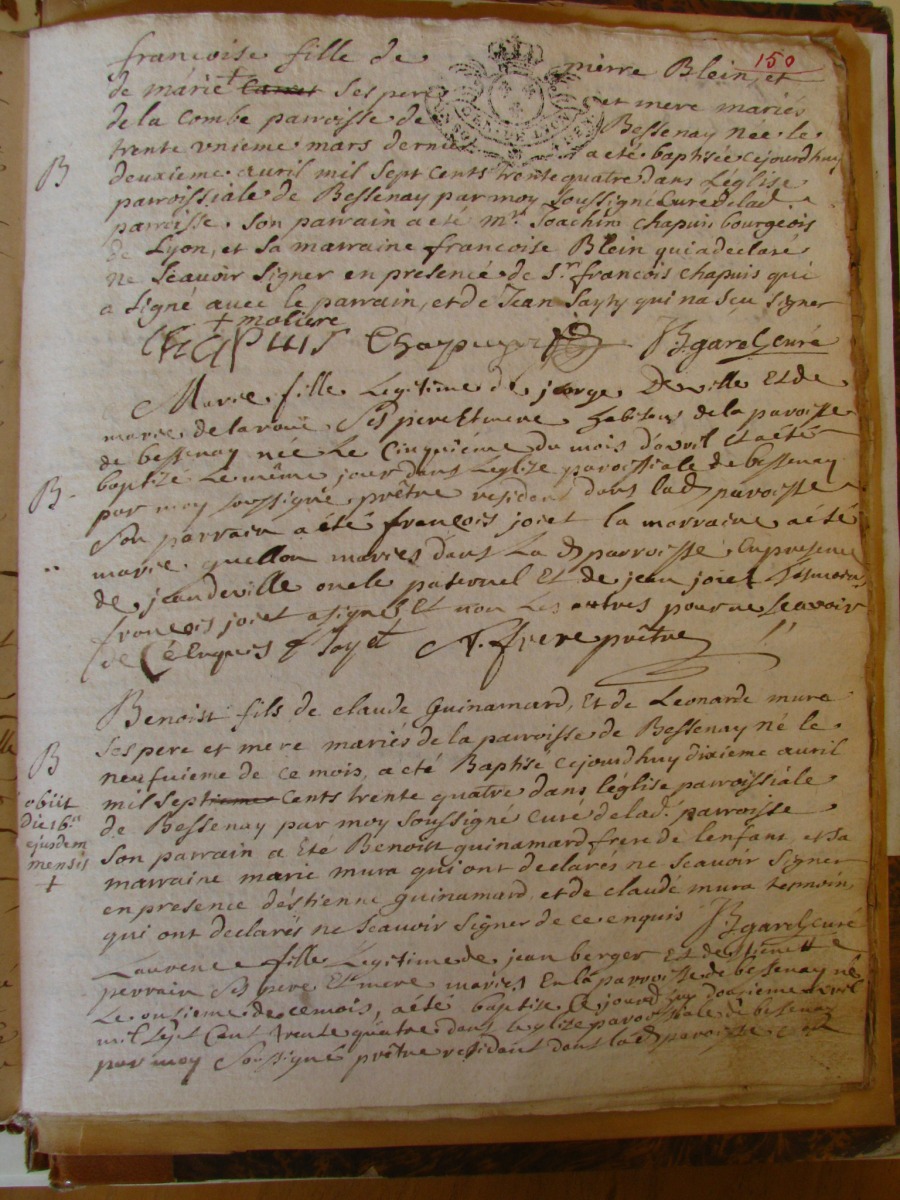 150
françoise fille de pierre Blein, et
de marie + Carret ses pere et mere mariés
de la Combe parroisse de Bessenay née le
trente unieme mars dernier a eté baptisée cejourdhuy
B
deuxieme avril mil sept cents trente quatre dans L'église
parroissiale de Bessenay par moy soussigné Curé de lad.
parroisse. son parrain a eté mr. Joachim chapuis bourgeois
de Lyon, et sa marraine françoise Blein qui a declaré
ne sçeavoir signer en presence de Sr. françois chapuis qui
a signé avec le parrain, et de Jean qui na sçu signer
+ moliere
Chapuis Chapuis JBgarel Curé
Marie fille Legitime de jeorge Deville Et de
marie delaroüe ses pere Et mere habitans de la paroisse
de bessenay née Le Cinquiéme du mois d'avril Et a été
B.
baptizé Le même jour dans L'églize paroissiale de bessenay
par moy soussigné prêtre resident dans lad paroisse
son parrain a été françois joiet la marraine a été
marie guellon mariés dans La d parroisse En presence
de jean deville oncle paternel Et de jean joiet tesmoins
françois joiet a signés Et non Les autres pour ne scavoir
de ce Enquis f Joyet N. frere prêtre
Benoist fils de claude Guinamard, Et de Leonarde mura
ses pere et mere mariés de la parroisse de Bessenay né le
B
neufuieme de ce mois, a eté Baptise cejourdhuy dixieme avril
mil sept Cents trente quatre dans léglise parroissiale
obiit
die 16.
ejusdem
mensis
+
de Bessenay par moy soussigné curé de lad. parroisse
son parrain a Eté Benoist guinamard frere de l'enfant, et sa
marraine marie mura qui ont declarés ne scavoir signer
en presence déstienne guinamard, et de claude mura temoins,
qui ont declarés ne scavoir signer de ce enquis JBgarel Curé
Laurence fille Legitime de jean berger Et de
perrain ses pere Et mere mariés En la parroisse de bessenay né
Le onsieme de ce mois, a été baptise Ce jourd huy douzieme avril
mil sept Cent trente quatre dans L'eglize paroissiale de bessenay
par moy soussigné prêtre resident dans lad paroisse